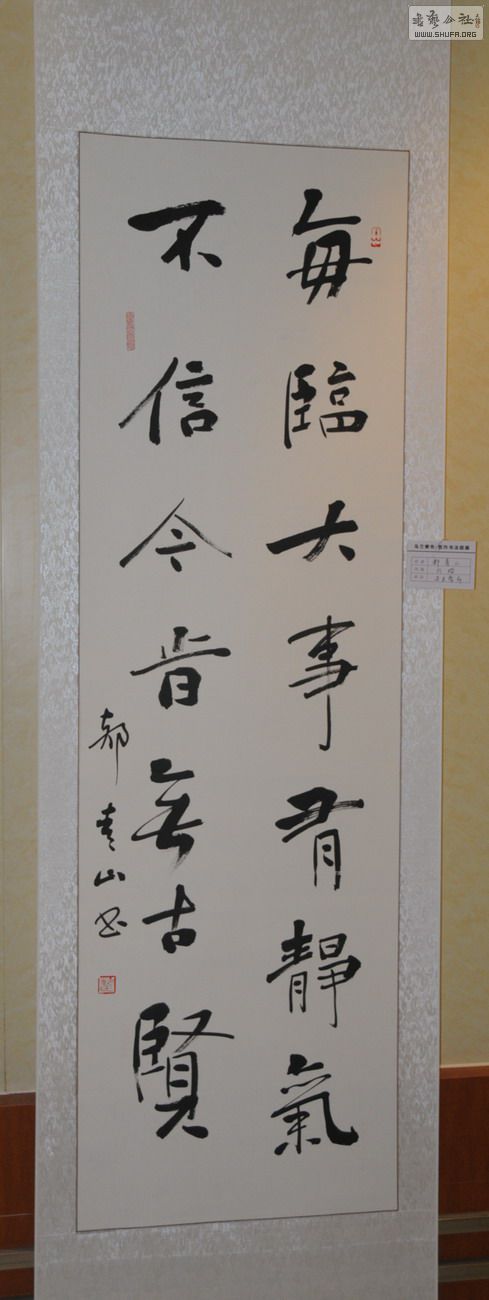 每臨大事有靜氣
不信今旹無古賢
郝青山书
書藝公社
WWW.SHUFA.ORG